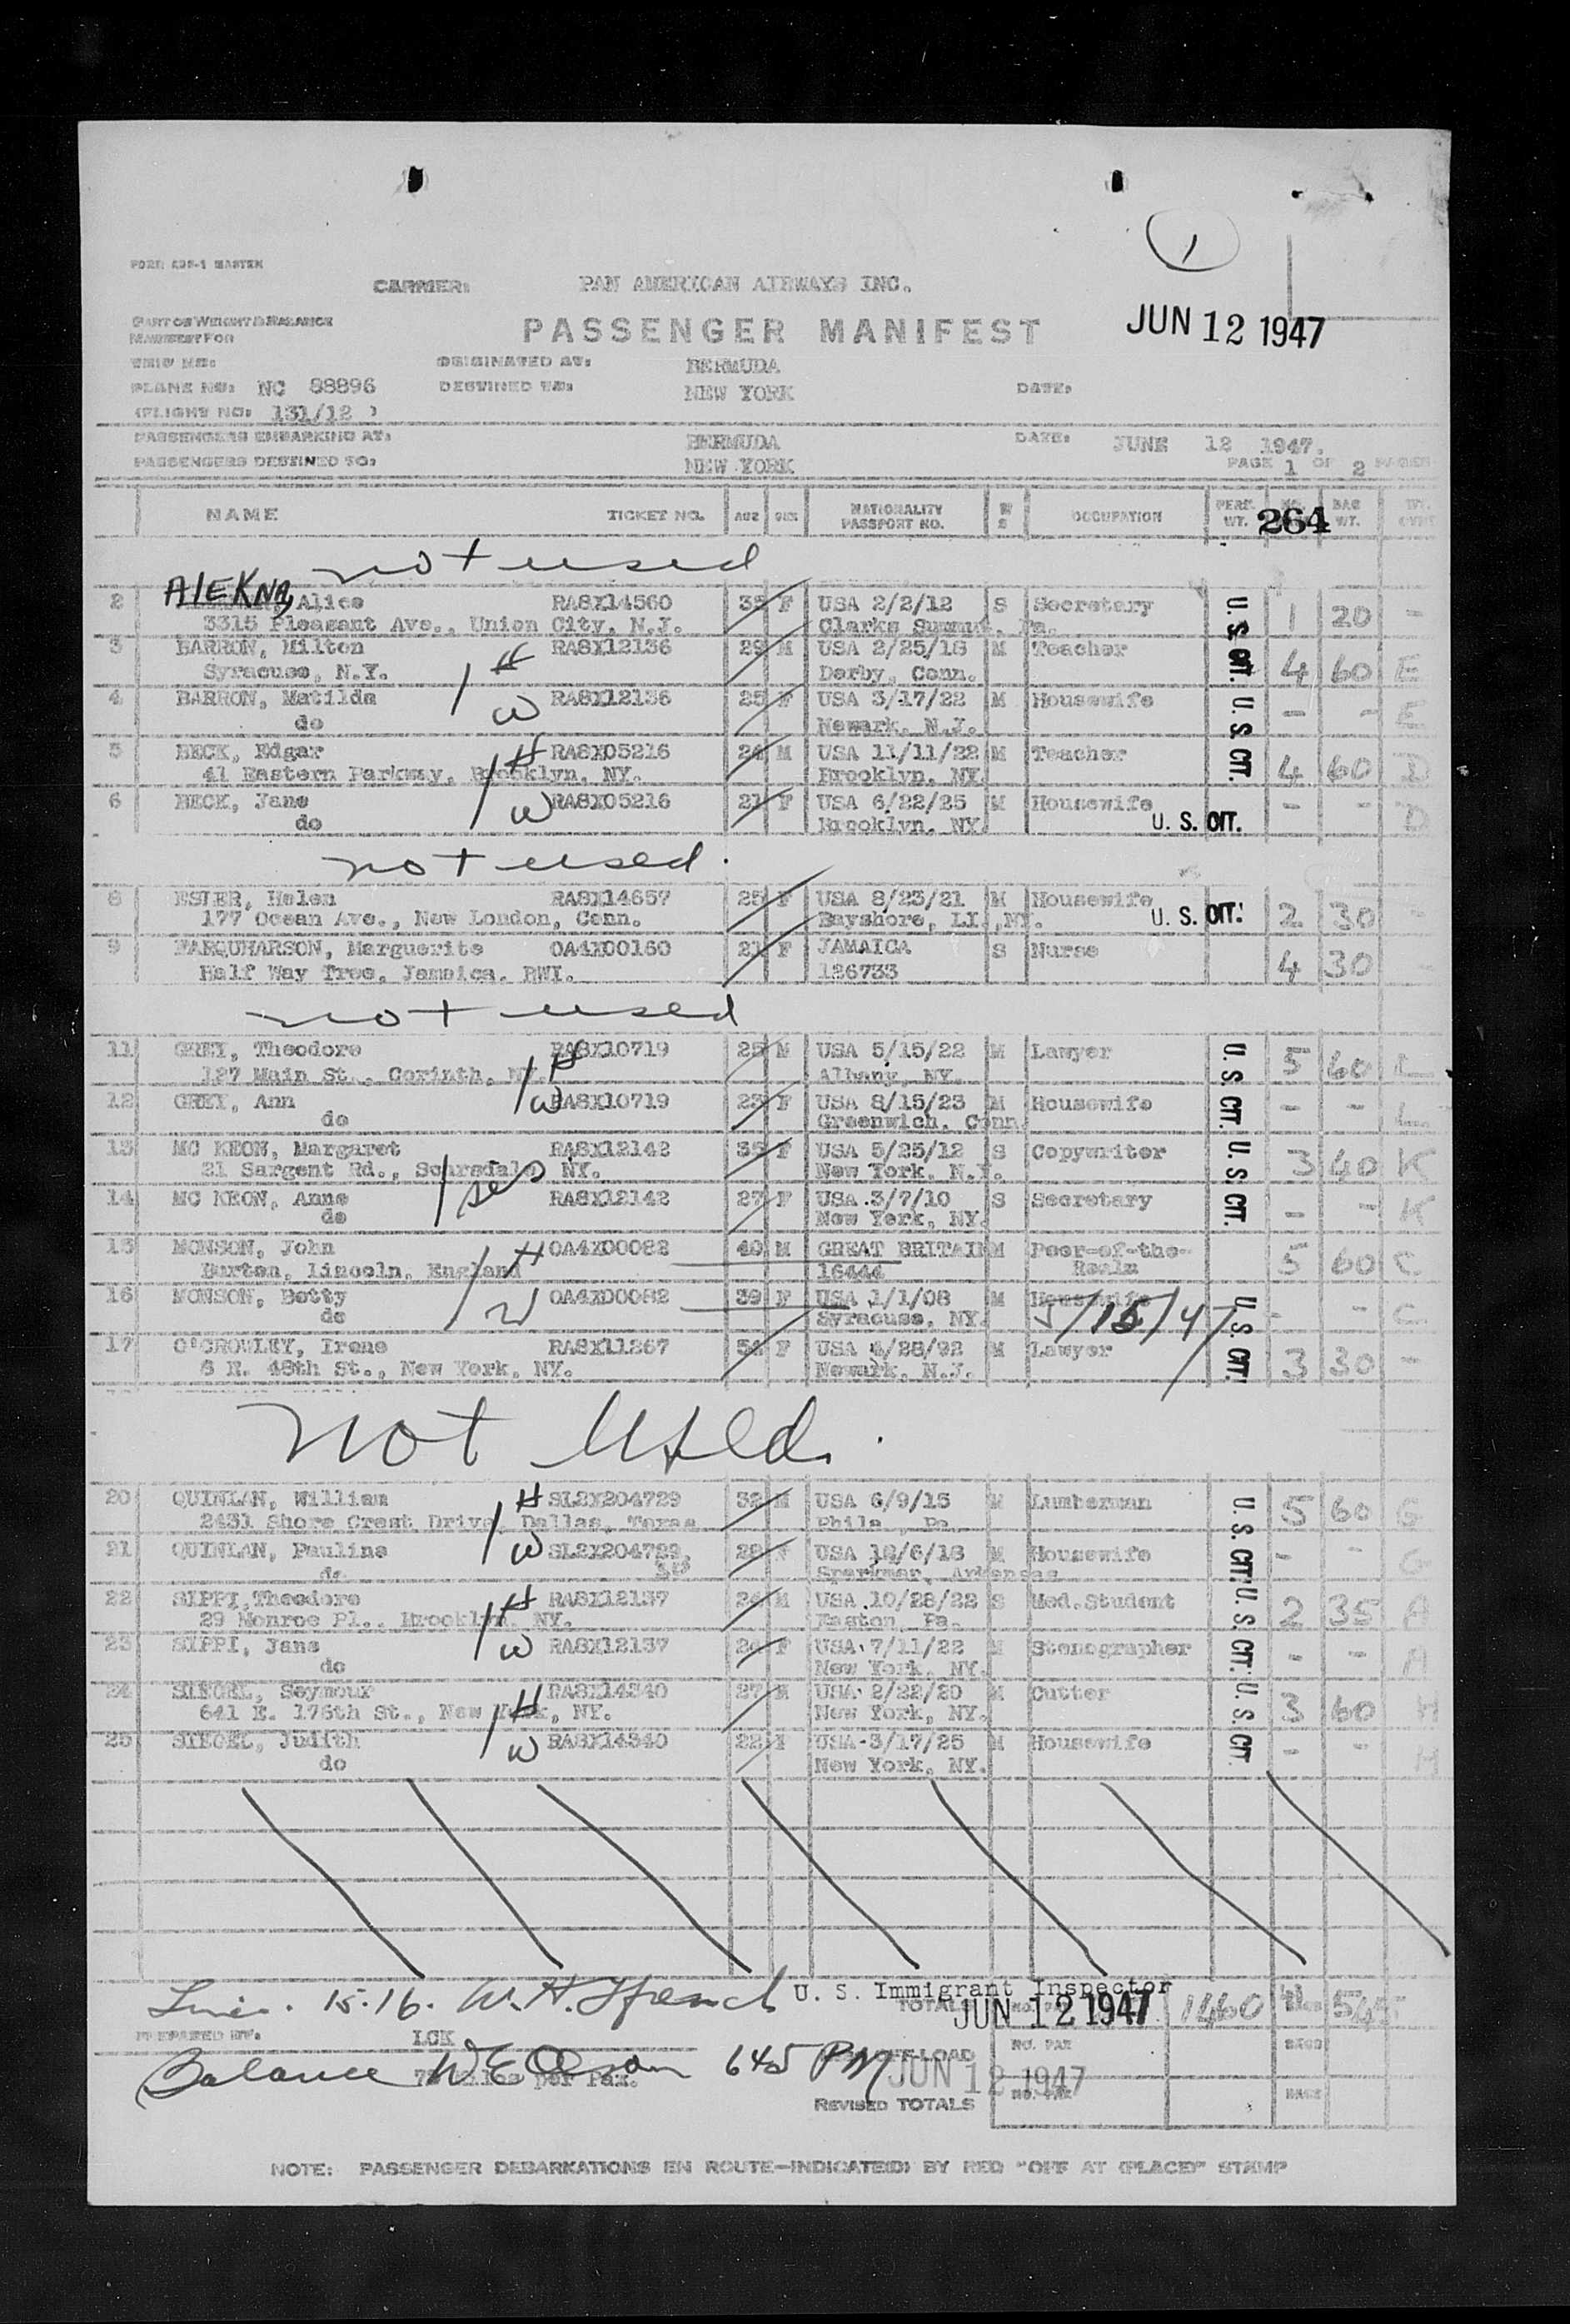 FORM ADF-1 MASTER
1
CARRIER: PAN AMERICAN AIRWAYS INC.
PART OF WEIGHT & BALANCE
MANIFEST FOR
PASSENGER MANIFEST
JUN 12 1947
TRIP NO: ORIGINATED AT: BERMUDA
PLANE NO: NC 88896 DESTINED TO: NEW YORK DATE:
(FLIGHT NO: 131/12 )
PASSENGERS EMBARKING AT: BERMUDA DATE: JUNE 12 1947.
PASSENGERS DESTINED TO: NEW YORK PAGE 1 OF 2 PAGES
NAME TICKET NO. AGE SEX NATIONALITY PASSPORT NO. M S OCCUPATION PERS. WT. 264 BAG WT.
not used
2 ALEKNA, Alice RA8X14560 35 F USA 2/2/12 S Secretary U. S. CIT. 1 20 -
3315 Pleasant Ave., Union City, N.J. Clarks Summit, Pa.
3 BARRON, Milton RA8X12136 29 M USA 2/25/18 M Teacher 4 60 E
Syracuse, N.Y. H Derby, Conn.
4 BARRON, Matilda RA8X12136 25 F USA 3/17/22 M Housewife U. S. CIT. - - E
do W Newark, N.J.
5 BECK, Edgar H RA8X05216 24 M USA 11/11/22 M Teacher 4 60 D
41 Eastern Parkway, Brooklyn, NY. Brooklyn, NY.
6 BECK, Jane W RA8X05216 21 F USA 6/22/25 M Housewife - - D
do Brooklyn, NY. U. S. CIT.
not used.
8 ESLER, Helen RA8X14657 25 F USA 8/23/21 M Housewife 2 30 -
177 Ocean Ave., New London, Conn. Bayshore, LI.,NY. U. S. CIT.
9 FARQUHARSON, Marguerite OA4X00160 21 F JAMAICA S Nurse 4 30 -
Half Way Tree, Jamaica, BWI. 126733
not used
11 GREY, Theodore RA8X10719 25 M USA 5/15/22 M Lawyer U. S. CIT. 5 60 L
127 Main St., Corinth, NY. H Albany, NY.
12 GREY, Ann W RA8X10719 23 F USA 8/15/23 M Housewife - - L
do Greenwich, Conn.
13 MC KEON, Margaret RA8X12142 35 F USA 5/25/12 S Copywriter U. S. CIT. 3 40 K
21 Sargent Rd., Scarsdale, NY. New York, N.Y.
14 MC KEON, Anne RA8X12142 27 F USA 3/7/10 S Secretary - - K
do New York, NY.
15 MONSON, John H OA4X00082 40 M GREAT BRITAIN M Peer-of-the- 5 60 C
Burton, Lincoln, England 16444 Realm
16 MONSON, Betty W OA4X00082 39 F USA 1/1/08 M Housewife U. S. CIT. - - C
do Syracuse, NY. 5/15/47
17 O'CROWLEY, Irene RA8X11267 54 F USA 4/28/92 M Lawyer 3 30 -
6 E. 48th St., New York, NY. Newark, N.J.
not used.
20 QUINLAN, William H SL2X204729 32 M USA 6/9/15 M Lumberman U. S. CIT. 5 60 G
2431 Shore Crest Drive, Dallas, Texas Phila., Pa.
21 QUINLAN, Pauline W SL2X204729 28 F USA 12/6/18 M Housewife - - G
do Sparkman, Arkansas
22 SIPPI, Theodore H RA8X12137 24 M USA 10/28/22 S Med. Student U. S. CIT. 2 35 A
29 Monroe Pl., Brooklyn, NY. Easton, Pa.
23 SIPPI, Jane W RA8X12137 24 F USA 7/11/22 M Stenographer - - A
do New York, NY.
24 SIEGEL, Seymour H RA8X14340 27 M USA 2/22/20 M Cutter U. S. CIT. 3 60 H
641 E. 176th St., New York, NY. New York, NY.
25 SIEGEL, Judith W RA8X14340 22 F USA 3/17/25 M Housewife - - H
do New York, NY.
15.16. W. H. U. S. Immigrant Inspector
TOTALS JUN 12 1947 NO. PAX 1460 41 BAGS 545
PREPARED BY: LCK NO. PAX BAGS
Balance 645 PM JUN 12 1947
REVISED TOTALS NO. PAX BAGS
NOTE: PASSENGER DEBARKATIONS EN ROUTE—INDICATE(D) BY RED "OFF AT (PLACE)" STAMP